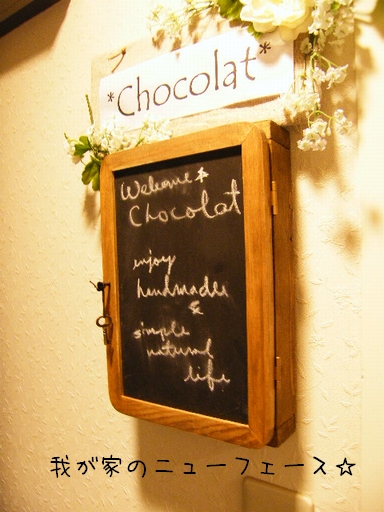 *Chocolat*
Welcome☆
Chocolat
enjoy
handmades
&
simple
natural
life
我が家のニューフェース☆